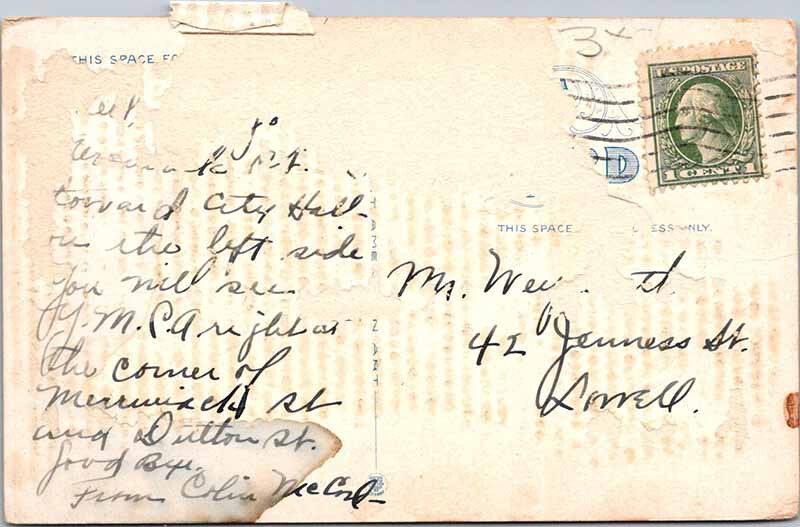 THIS SPACE FO
toward City Hall
on the left side
you will see
Y.M.C.A right at
the corner of
Merrimack st
and Dutton St.
Good Bye.
From Colin McCord
3x
U.S. POSTAGE
1 CENT 1
D
THIS SPACE ESS ONLY.
Mr.
42 Jenness St.
Lowell.